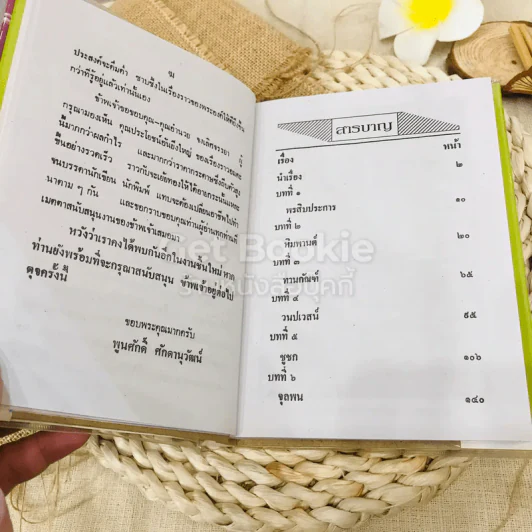 ฆ
ประสงค์จะดื่มด่ำ ซาบซึ้งในเรื่องราวของพระองค์ให้ดียิ่งขึ้น
กว่าที่รู้อยู่แล้วเท่านั้นเอง
ข้าพเจ้าขอขอบคุณ-คุณอำนวย จงเลิศจรรยา ผู้
กรุณามองเห็น คุณประโยชน์อันยิ่งใหญ่ ของเรื่องราวอมตะ
นี้มากกว่าผลกำไร และมากกว่าราคากระดาษซึ่งถีบตัวสูง
ขึ้นอย่างรวดเร็ว ราวกับจะเย้ยทองให้ได้อายกระนั้นแหละ
จนบรรดานักเขียน นักพิมพ์ แทบจะต้องเปลี่ยนอาชีพไปทำ
นาตาม ๆ กัน และขอกราบขอบคุณท่านผู้อ่านทุกท่านที่
เมตตาสนับสนุนงานของข้าพเจ้าเสมอมา
หวังว่าเราคงได้พบกันอีกในงานชิ้นใหม่ หาก
ท่านยังพร้อมที่จะกรุณาสนับสนุน ข้าพเจ้าอยู่ต่อไป
ดุจครั้งนี้
ขอบพระคุณมากครับ
พูนศักดิ์ ศักดานุวัฒน์
สารบาญ
เรื่อง หน้า
นำเรื่อง ๒
บทที่ ๑
พรสิบประการ ๑๐
บทที่ ๒
หิมพานต์ ๒๐
บทที่ ๓
ทานกัณฑ์ ๖๕
บทที่ ๔
วนปเวสน์ ๙๕
บทที่ ๕
ชูชก ๑๐๖
บทที่ ๖
จุลพน ๑๔๐
Get Bookie
ร้านหนังสือบุคกี้